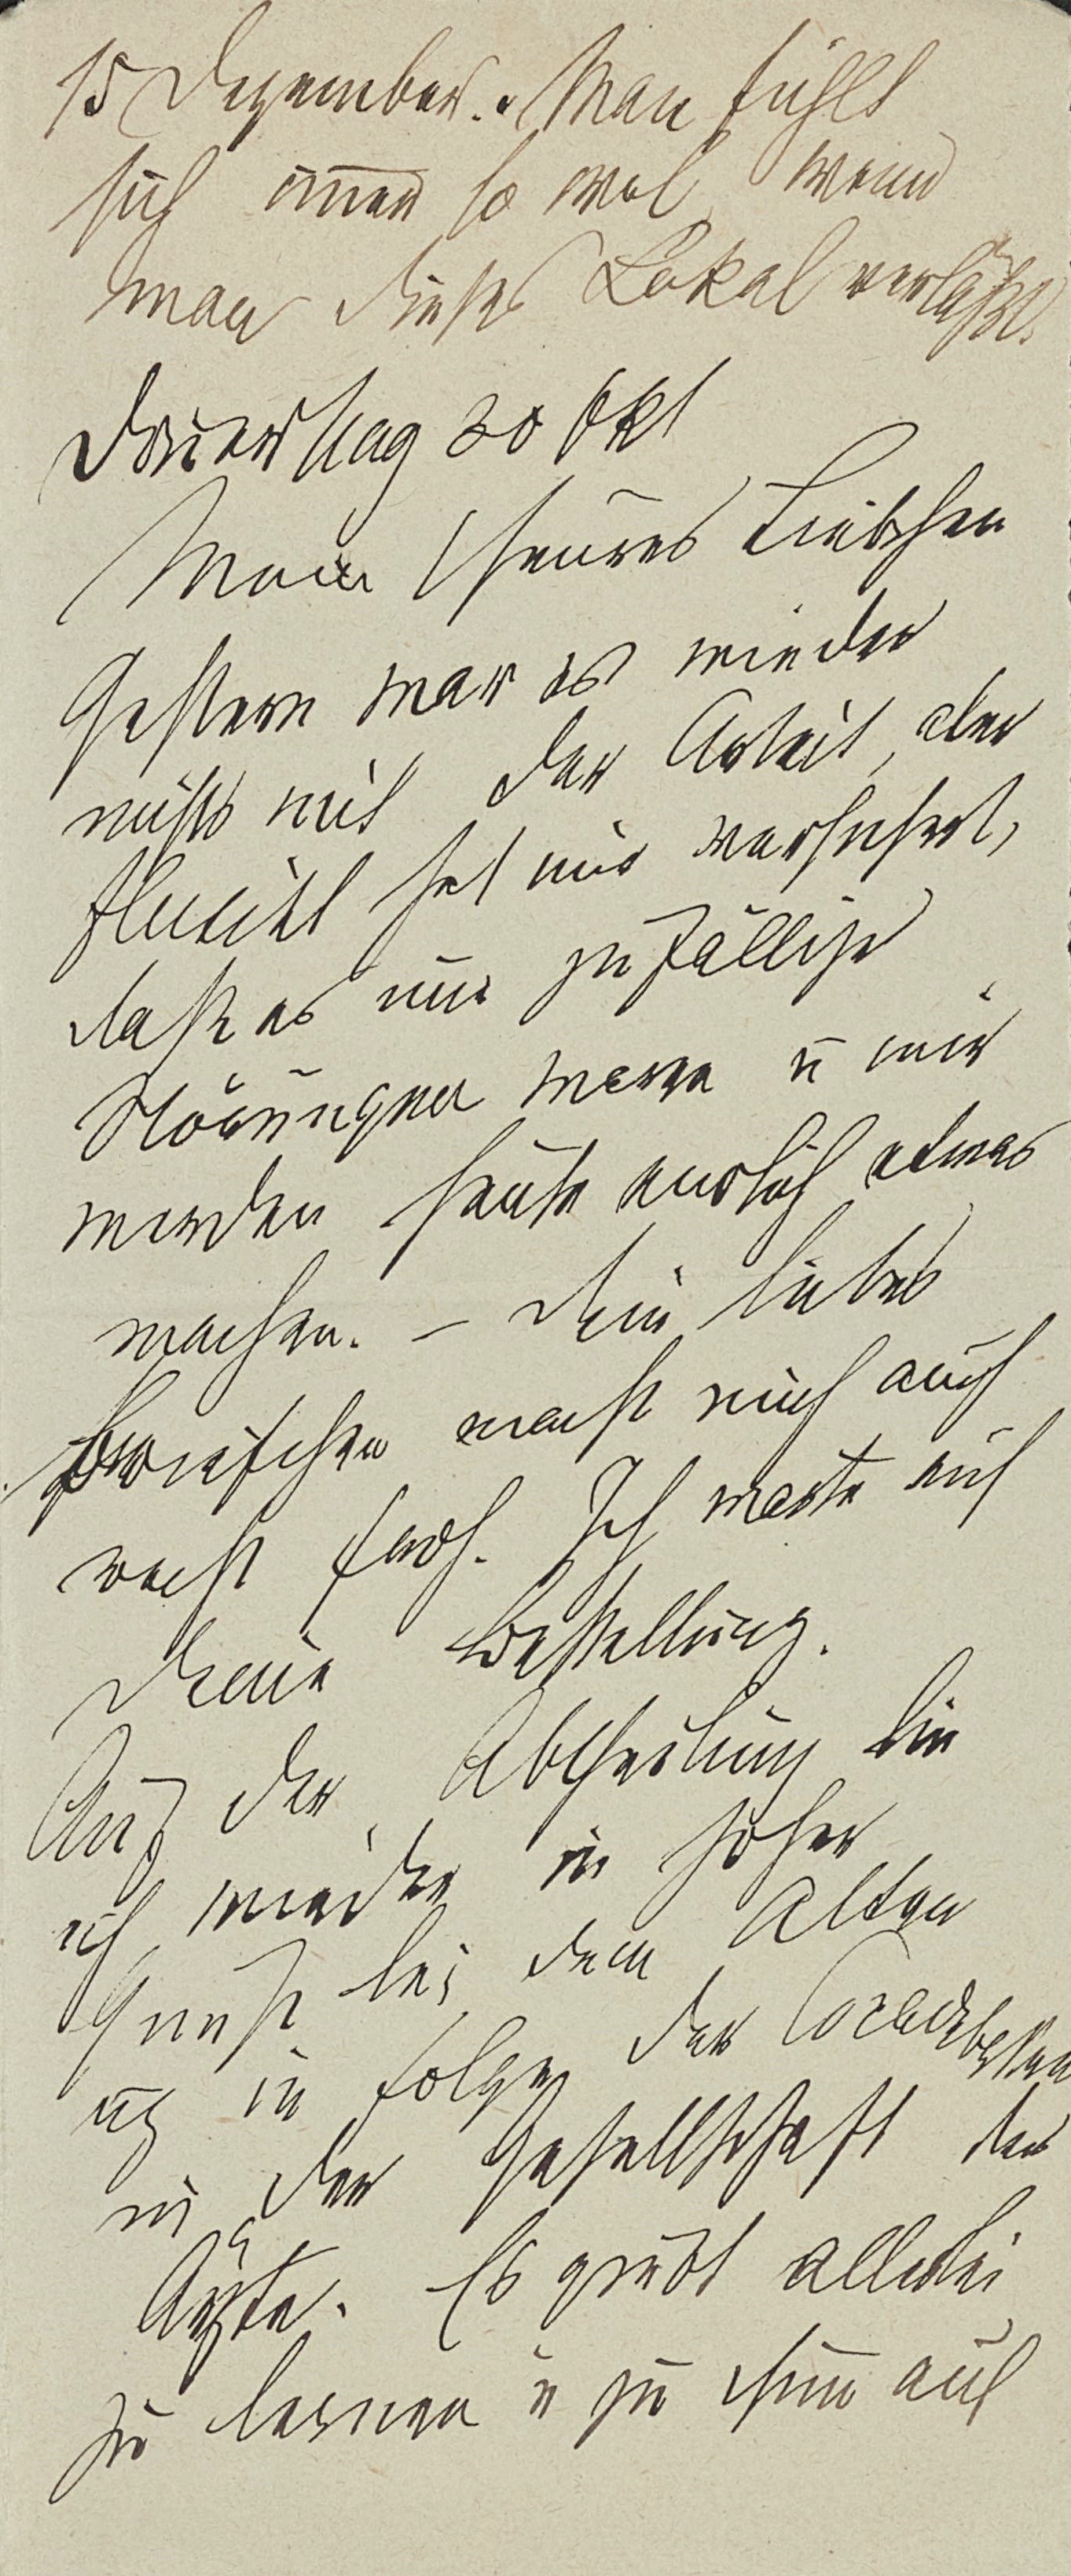 15 Dezember. Man fühlt
sich im̄er so wol, wenn
man dieses Lokal verläßt.
Don̄erstag 30 Okt
Mein theures Liebchen
Gestern war es wieder
nichts mit der Arbeit, aber
Fleischl hat mir versichert,
daß es nur zufällige
Störungen waren u wir
werden heute endlich etwas
machen. – Dein liebes
Briefchen macht mich auch
recht froh. Ich warte auf
Deine Bestellung.
Auf der Abtheilung bin
ich wieder in hoher
Gunst bei dem Alten
in Folge der
in der Gesellschaft der
Ärzte. Es giebt allerlei
zu lernen u zu thun auf